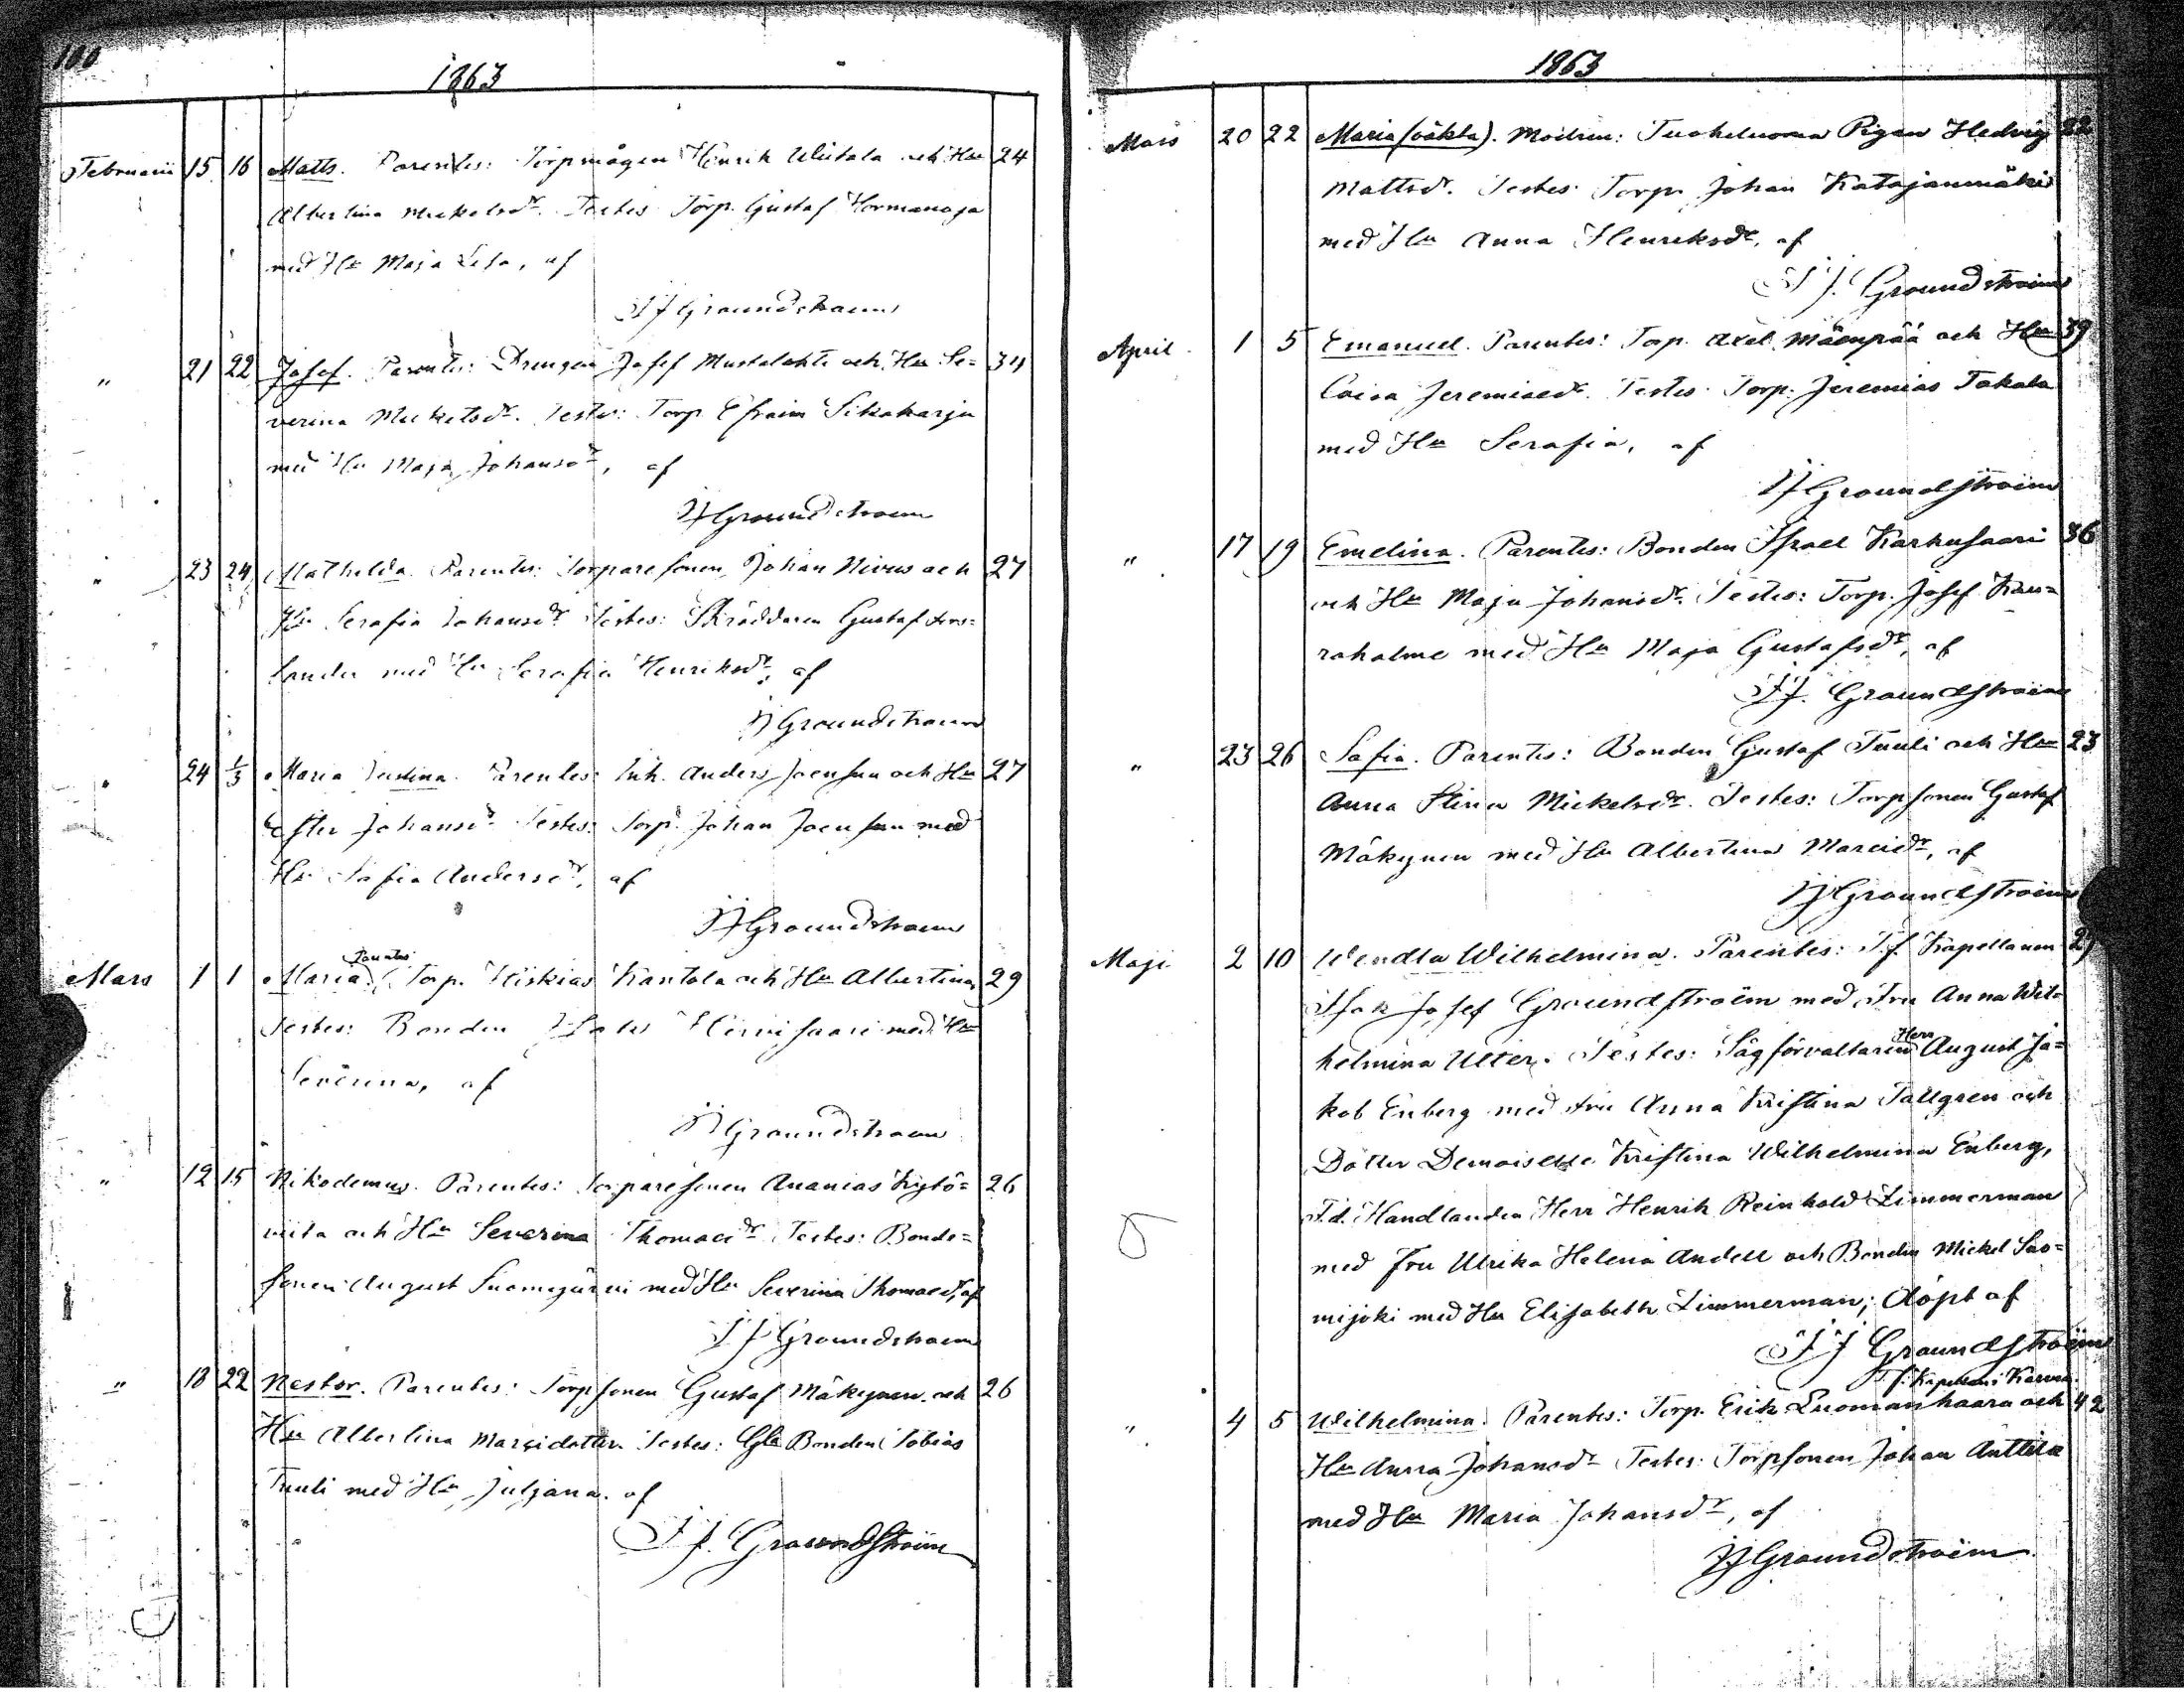 100
1863
Februarii 15 16 Matts. Parentes: Torpmågen Henrik Wiitala och Hu 24
Albertina Mickelsdr. Testes Torp. Gustaf Hormanoja
med Hu Maja Lesa, af
IJ Groundstroem
" 21 22 Josef. Parentes: Drengen Josef Mustalahti och Hu Se= 34
verina Mickelsdr. Testes: Torp Efraim Sikaharju
med Hu Maja Johansdr, af
IJ Groundstroem
" 23 24 Mathilda. Parentes: Torparesonen Johan Nivus och 27
Hu Serafia Johansdr Testes: Skräddaren Gustaf
lander med Hu Serafia Henriksdr, af
IJ Groundstroem
" 24 1/3 Maria Justina. Parentes: Inh. Anders Joensuu och Hu 27
Ester Johansdr Testes: Torp. Johan Joensuu med
Hu Sofia Andersdr, af
IJ Groundstroem
Parentes
Mars 1 1 Maria. Torp. Hiskias Kantola och Hu Albertina, 29
Testes: Bonden Hirvisaari med Hu
Severina, af
IJ Groundstroem
" 12 15 Nikodemus. Parentes: Torparesonen Ananias Kytö= 26
viita och Hu Severina Thomasdr Testes: Bonde=
sonen August Suomijärvi med Hu Severina Thomasdr, af
IJ Groundstroem
" 18 22 Nestor. Parentes: Torpsonen Gustaf Mäkynen och 26
Hu Albertina Marcidotter. Testes: Gla Bonden Tobias
Tuuli med Hu Juljana. af
I J. Groundstroem
1863
Mars 20 22 Maria (oäkta). Modren: Tuoheluoma Pigan Hedvig 22
Mattsdr. Testes Torp. Johan Katajanmäki
med Hu Anna Henriksdr, af
I J. Groundstroem
April 1 5 Emanuel. Parentes: Torp. Axel Mäenpää och Hu 39
Caisa Jeremiaedr. Testes Torp. Jeremias Takala
med Hu Serafia, af
IJ Groundstroem
" 17 19 Emelina. Parentes: Bonden Israel Karhusaari 36
och Hu Maja Johansdr. Testes: Torp. Josef Kau=
rahalme med Hu Maja Gustafsdr, af
IJ. Groundstroem
" 23 26 Sofia. Parentes: Bonden Gustaf Tuuli och Hu 23
Anna Stina Mickelsdr. Testes: Torpsonen Gustaf
Mäkynen med Hu Albertina Marcidr, af
IJ Groundstroem
Maji 2 10 Wendla Wilhelmina. Parentes: T.f. Kapellanen 27
Isak Josef Groundstroem med Fru Anna Wil=
helmina Ulter. Testes: Sågförvaltaren Herr August Ja=
kob Enberg med Fru Anna Kristina Tallgren och
Dotter Demoiselle Kristina Wilhelmina Enberg,
F.d. Handlanden Herr Henrik Reinhold Limmerman
med Fru Ulrika Helena Andell och Bonden Mickel Suo=
mijoki med Hu Elisabeth Limmerman; döpt af
I J Groundstroem
T.f. Kapellan i Karvia.
" 4 5 Wilhelmina. Parentes: Torp. Erik Luomanhaara och 42
Hu Anna Johansdr Testes: Torpsonen Johan Anttila
med Hu Maria Johansdr, af
IJ Groundstroem